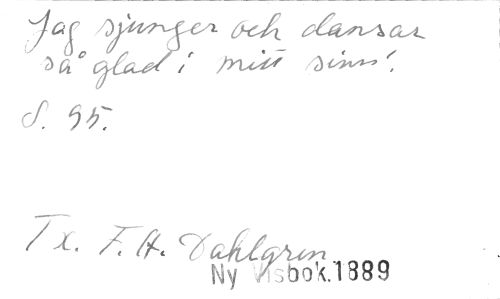 Jag sjunger och dansar
så glad i mitt sinn'.
S. 95.
Tx. F. H. Dahlgren
Ny Visbok.1889